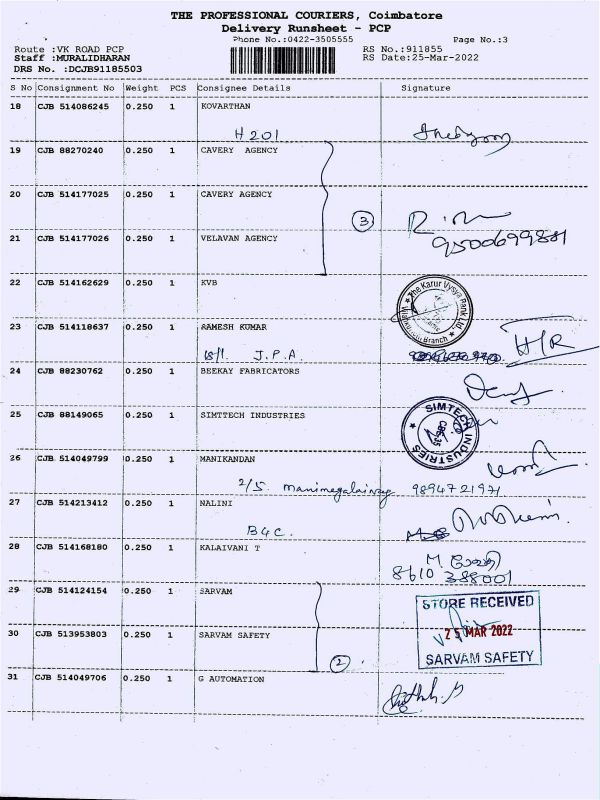 THE PROFESSIONAL COURIERS, Coimbatore
Delivery Runsheet - PCP
Phone No.:0422-3505555
Page No.:3
Route :VK ROAD PCP
RS No.:911855
Staff :MURALIDHARAN
RS Date:25-Mar-2022
DRS No. :DCJB91185503
S No Consignment No Weight PCS Consignee Details Signature
18 CJB 514086245 0.250 1 KOVARTHAN
H 201
19 CJB 88270240 0.250 1 CAVERY AGENCY
20 CJB 514177025 0.250 1 CAVERY AGENCY
3
21 CJB 514177026 0.250 1 VELAVAN AGENCY
22 CJB 514162629 0.250 1 KVB
The Karur Vysya Bank Ltd.
Branch
23 CJB 514118637 0.250 1 RAMESH KUMAR
H/R
J.P.A.
24 CJB 88230762 0.250 1 BEEKAY FABRICATORS
25 CJB 88149065 0.250 1 SIMTTECH INDUSTRIES
SIMTECH INDUSTRIES
26 CJB 514049799 0.250 1 MANIKANDAN
2/5. 9894721971
27 CJB 514213412 0.250 1 NALINI
B4C.
28 CJB 514168180 0.250 1 KALAIVANI T
8610 388001
29 CJB 514124154 0.250 1 SARVAM
STORE RECEIVED
30 CJB 513953803 0.250 1 SARVAM SAFETY
25 MAR 2022
2
SARVAM SAFETY
31 CJB 514049706 0.250 1 G AUTOMATION